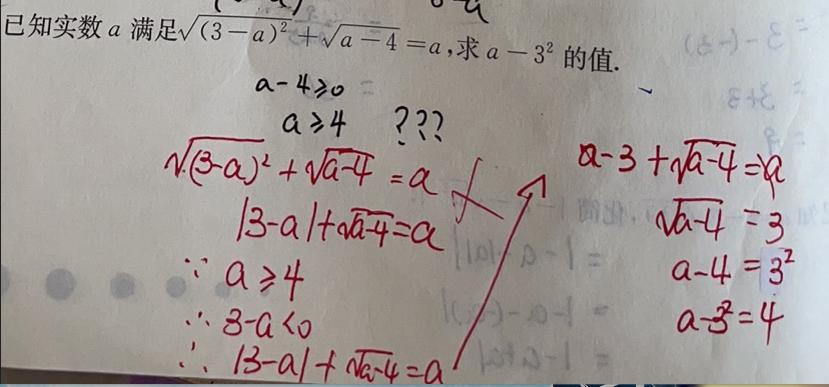 已知实数 a 满足√(3-a)² + √a-4 = a,求 a - 3² 的值.
a-4≥0
a≥4 ???
√(3-a)² + √a-4 = a
|3-a|+√a-4=a
∵ a≥4
∴ 3-a<0
∴ |3-a|+√a-4=a
a-3+√a-4=a
√a-4=3
a-4=3²
a-3²=4